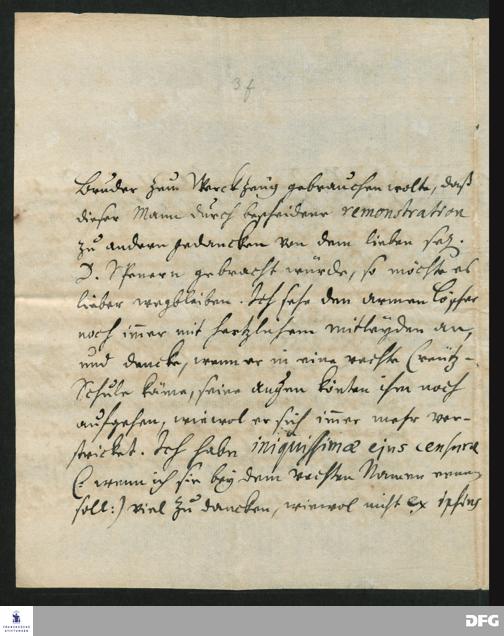 3f
Bruder zum Werckzeug gebrauchen wolte, daß
dieser Mann durch bescheidene remonstration
zu andern gedancken von dem lieben sel.
D. Spenern gebracht würde, so möchte es
lieber wegbleiben. Ich sehe den armen
noch immer mit hertzlichem mitleyden an,
und dencke, wenn er in eine rechte Creütz-
Schule käme, seine augen könten ihm noch
aufgehen, wiewol er sich immer mehr ver-
stricket. Ich habe iniquissimæ ejus censuræ
(: wenn ich sie bey dem rechten Namen nennen
soll:) viel zu dancken, wiewol nicht ex ipsius
FRANCKESCHE STIFTUNGEN
DFG